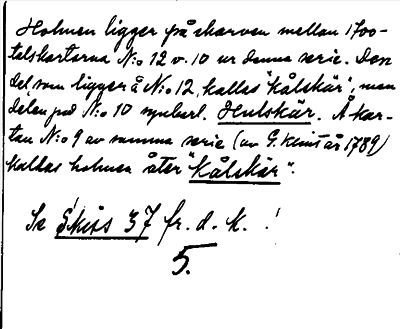 Holmen ligger på skarven mellan 1700-
talskartorna N:o 12 o. 10 ur denna serie. Den
del som ligger å N:o 12, kallas "Kålskär", men
delen på N:o 10 synbarl. Hulskär. Å kar-
tan N:o 9 av samma serie (av G. Klint år 1789)
kallas holmen åter "Kålskär".
Se Skiss 37 fr. d. k.
5.